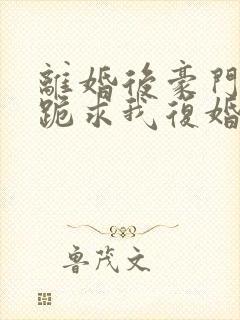 離婚後豪門
跪求我復婚
魯茂文